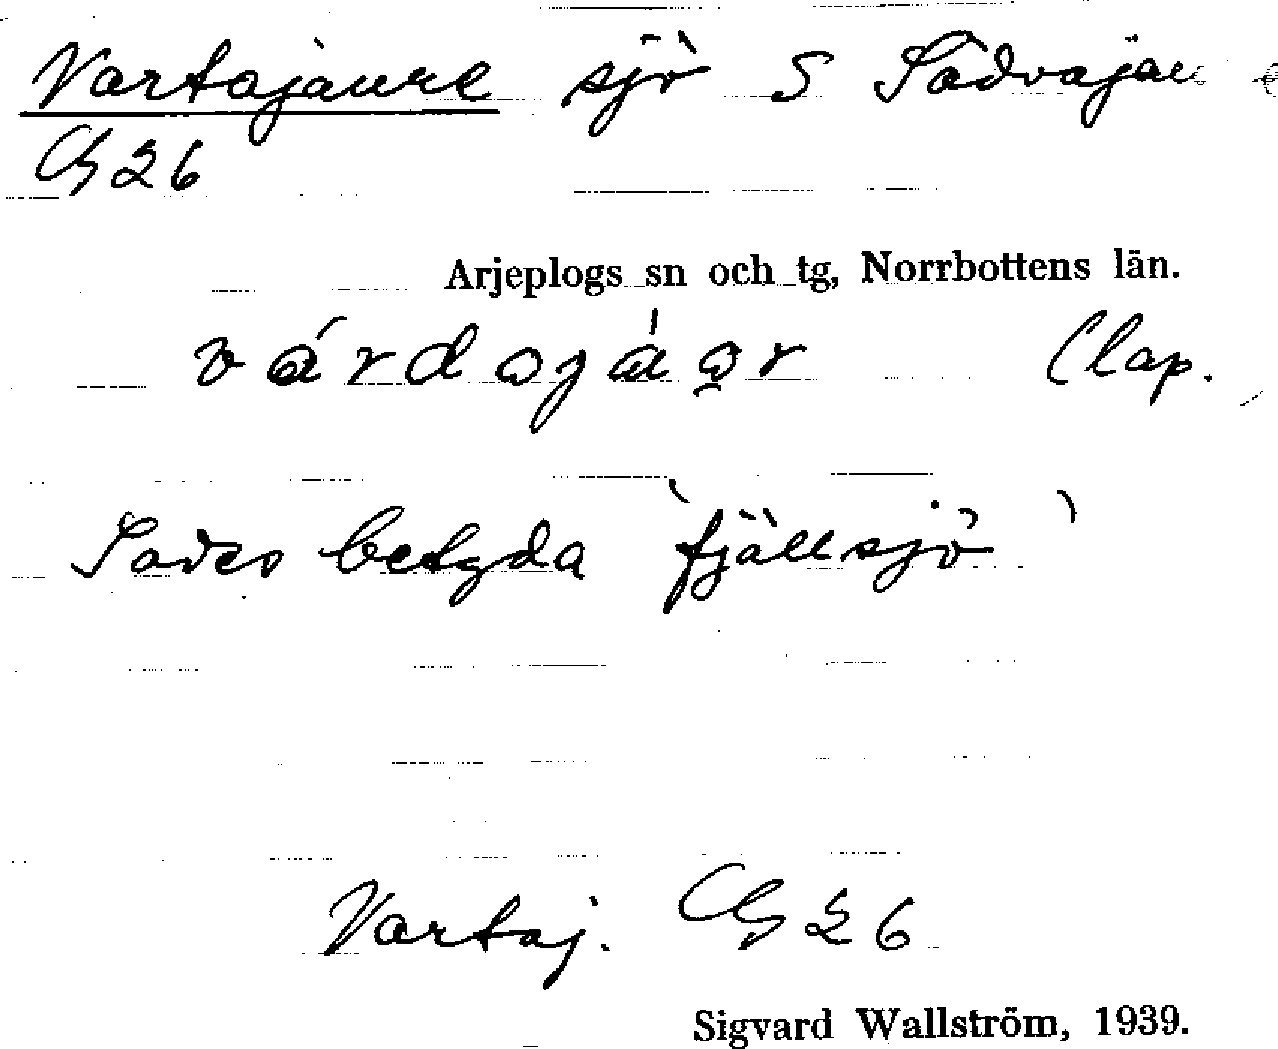 Vartajaure sjö S Sädvajau e
G 26
Arjeplogs sn och tg, Norrbottens län.
várdajáar (lap.
Sades betyda 'fjällsjö'
Vartaj. G 26
Sigvard Wallström, 1939.